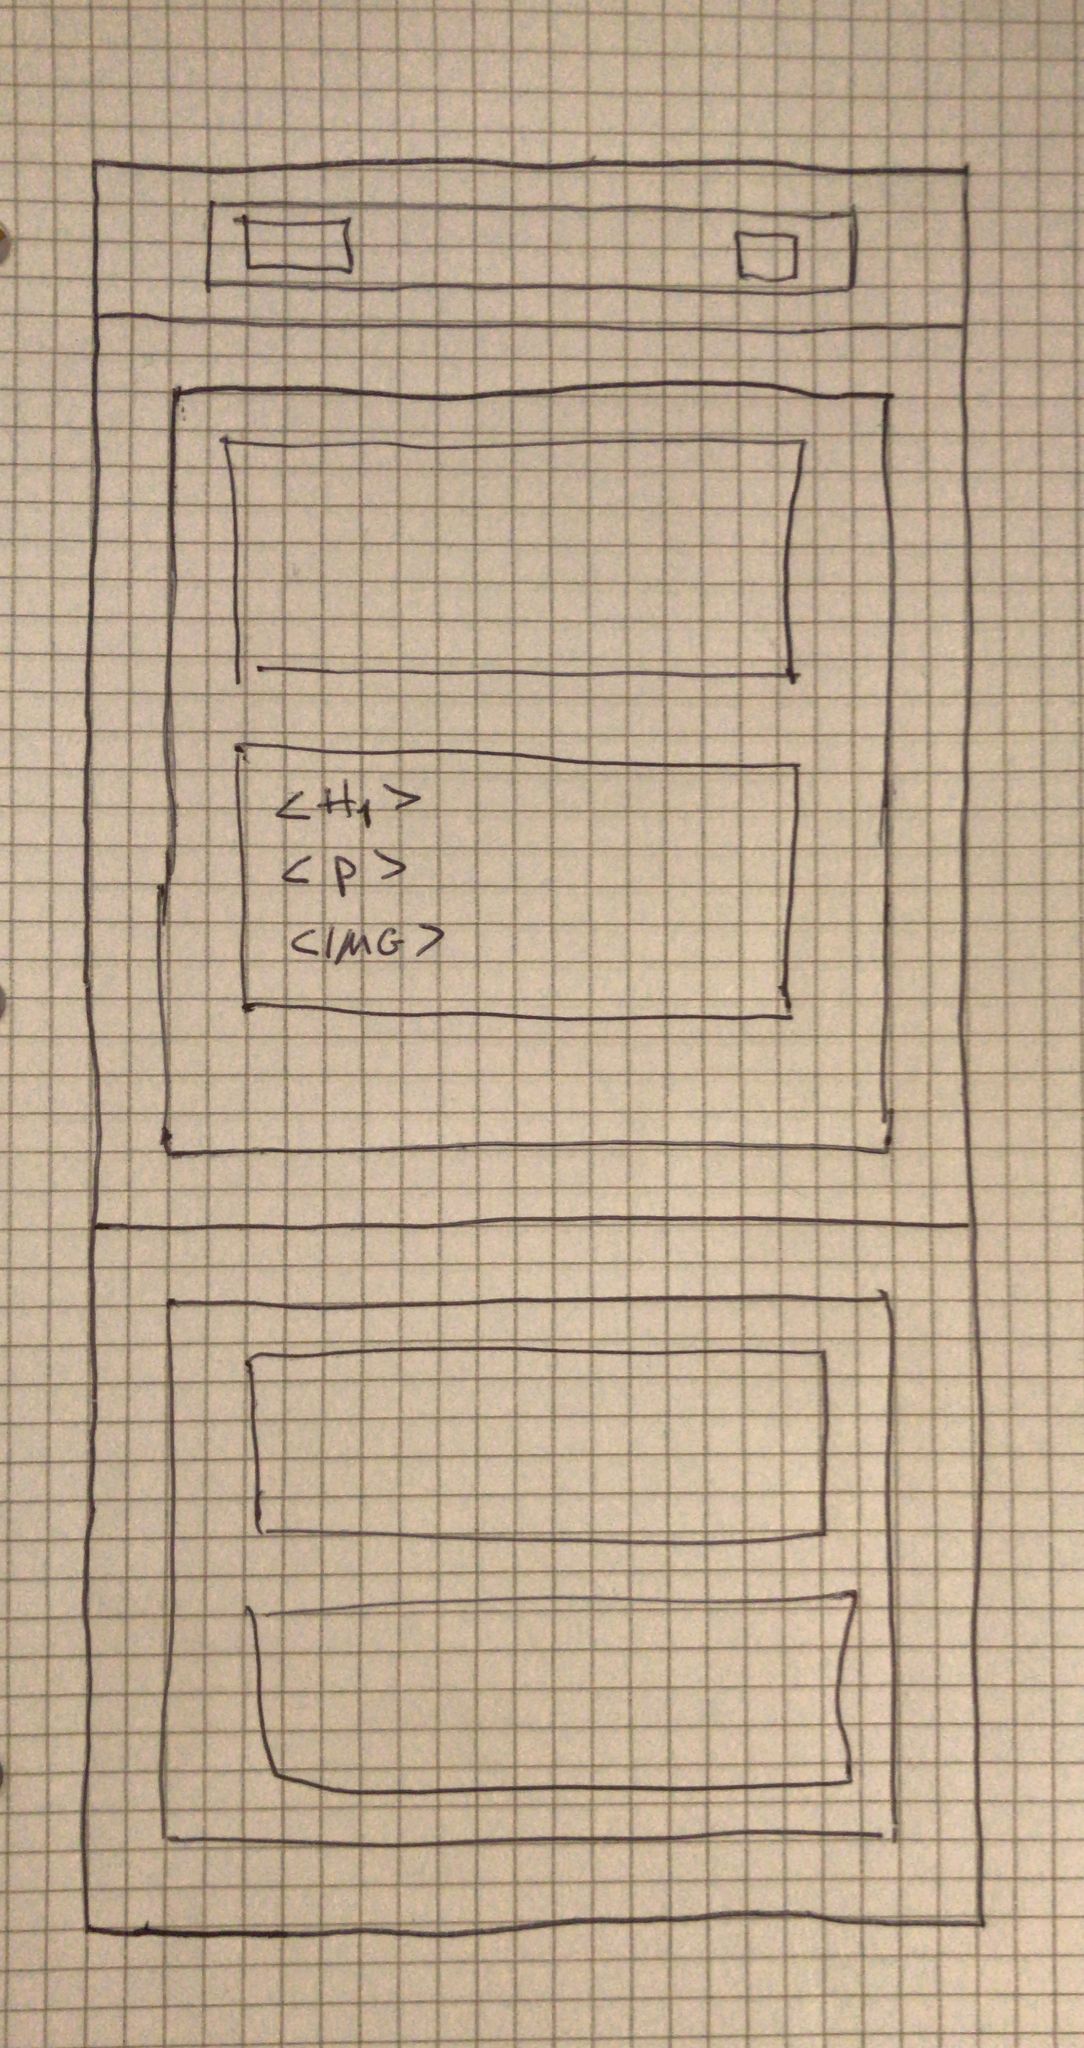 <H1>
<P>
<IMG>